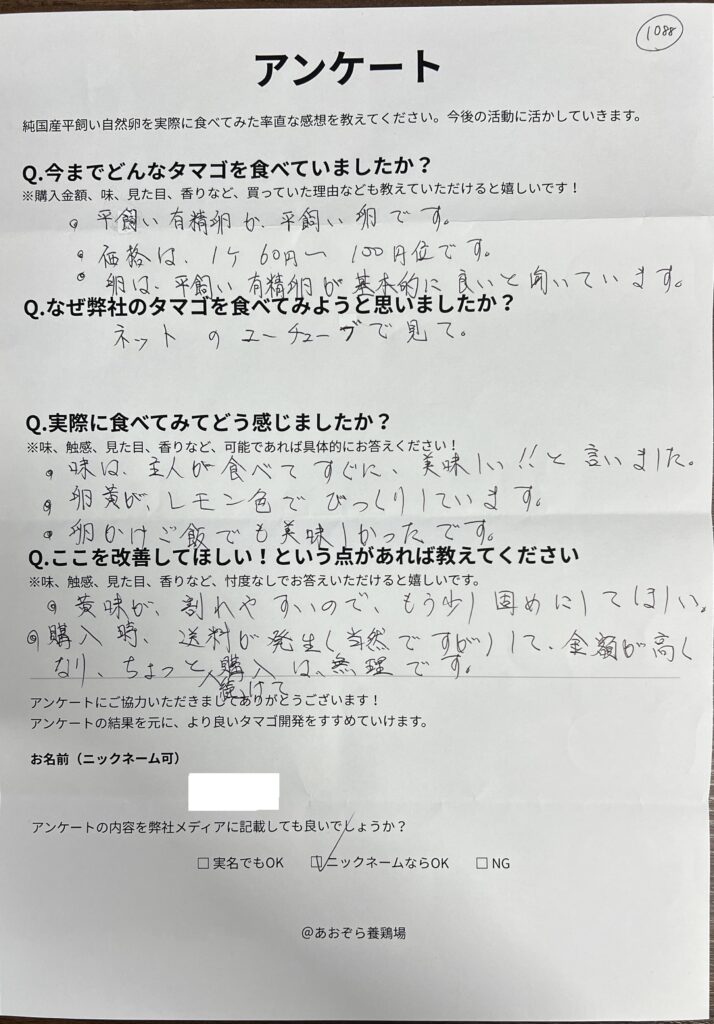 1088
アンケート
純国産平飼い自然卵を実際に食べてみた率直な感想を教えてください。今後の活動に活かしていきます。
Q.今までどんなタマゴを食べていましたか？
※購入金額、味、見た目、香りなど、買っていた理由なども教えていただけると嬉しいです！
◎ 平飼い有精卵か、平飼い卵です。
◎ 価格は、1ケ60円〜100円位です。
◎ 卵は、平飼い有精卵が基本的に良いと聞いています。
Q.なぜ弊社のタマゴを食べてみようと思いましたか？
ネットのユーチューブで見て。
Q.実際に食べてみてどう感じましたか？
※味、触感、見た目、香りなど、可能であれば具体的にお答えください！
◎ 味は、主人が食べてすぐに、美味しい!!と言いました。
◎ 卵黄が、レモン色でびっくりしています。
◎ 卵かけご飯でも美味しかったです。
Q.ここを改善してほしい！という点があれば教えてください
※味、触感、見た目、香りなど、忖度なしでお答えいただけると嬉しいです。
◎ 黄味が、割れやすいので、もう少し固めにしてほしい。
◎ 購入時、送料が発生(当然ですが)して、金額が高く
なり、ちょっと続けて購入は、無理です。
アンケートにご協力いただきましてありがとうございます！
アンケートの結果を元に、より良いタマゴ開発をすすめていけます。
お名前（ニックネーム可）
アンケートの内容を弊社メディアに記載しても良いでしょうか？
□ 実名でもOK ☑ ニックネームならOK □ NG
@あおぞら養鶏場